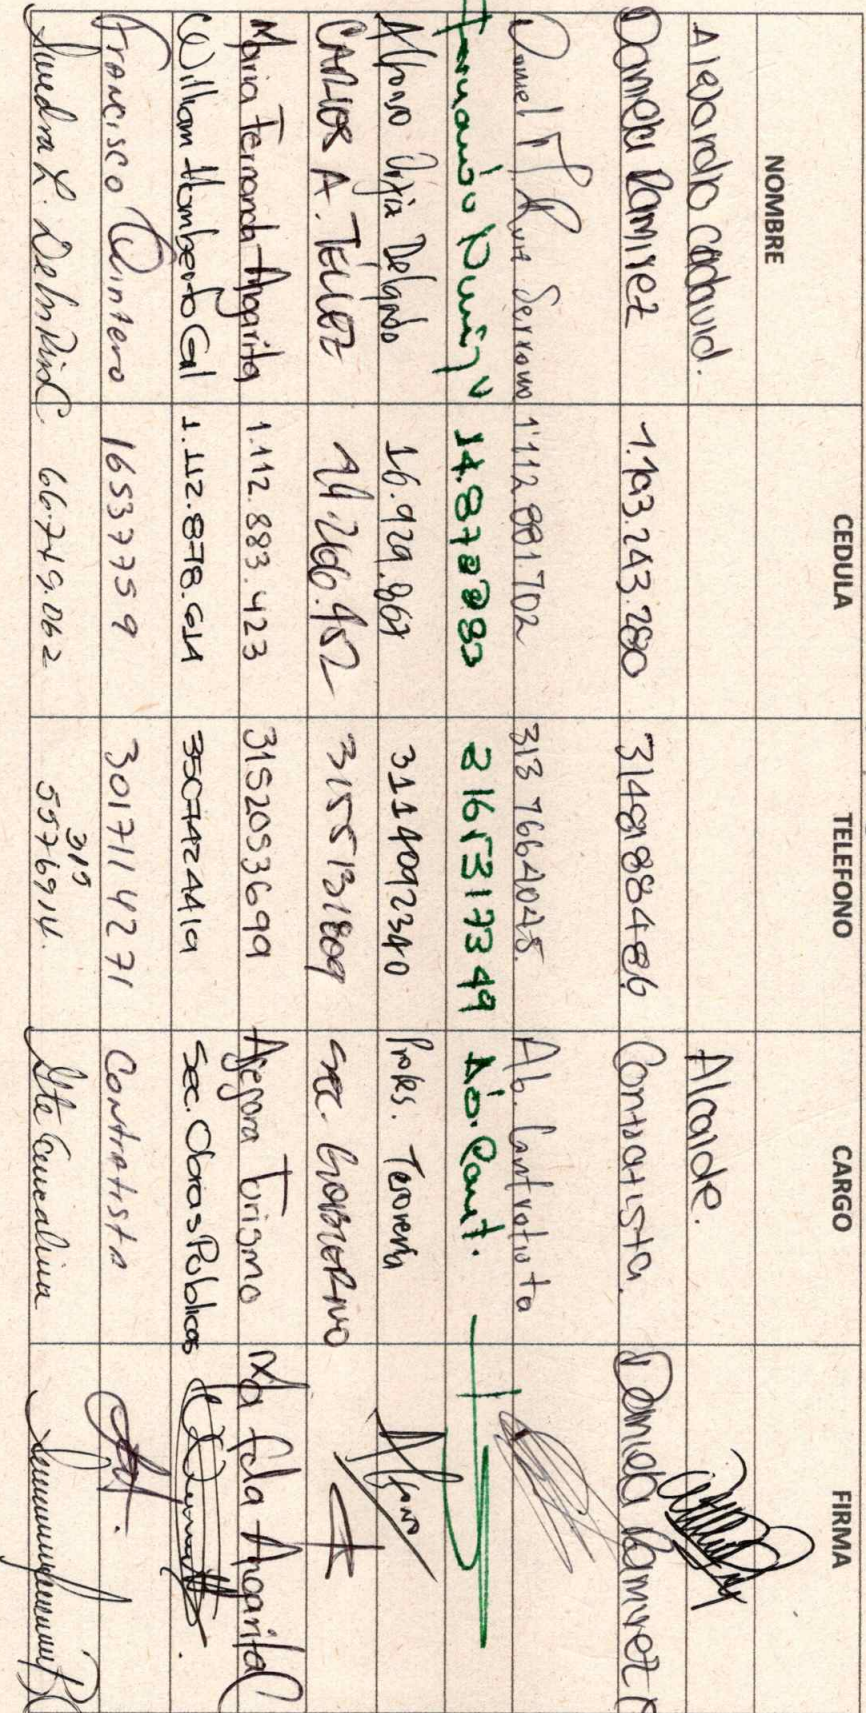 NOMBRE CEDULA TELEFONO CARGO FIRMA
Alejandro Cadavid. Alcalde.
Daniela Ramirez 1.193.243.280 3148188486 Contratista. Daniela Ramirez
Daniel Ruiz Serrano 1'112.881.702 313 7664045. Ab. Contratista
Fernando 316 5317349 Ab. Cont.
Alfonso Delgado 16.929.867 3114092340 Profes. Tesoreria Alfonso
CARLOS A. TELLEZ 3155131809 Sec. GOBIERNO
Maria Fernanda Angarita 1.112.883.423 3152053699 Asesora Turismo Ma Fda Angarita
William Humberto Gil 1.112.878.614 3507424419 Sec. Obras Publicas
Francisco Quintero 16537759 301711 4271 Contratista
66.719.062 315
5576914.